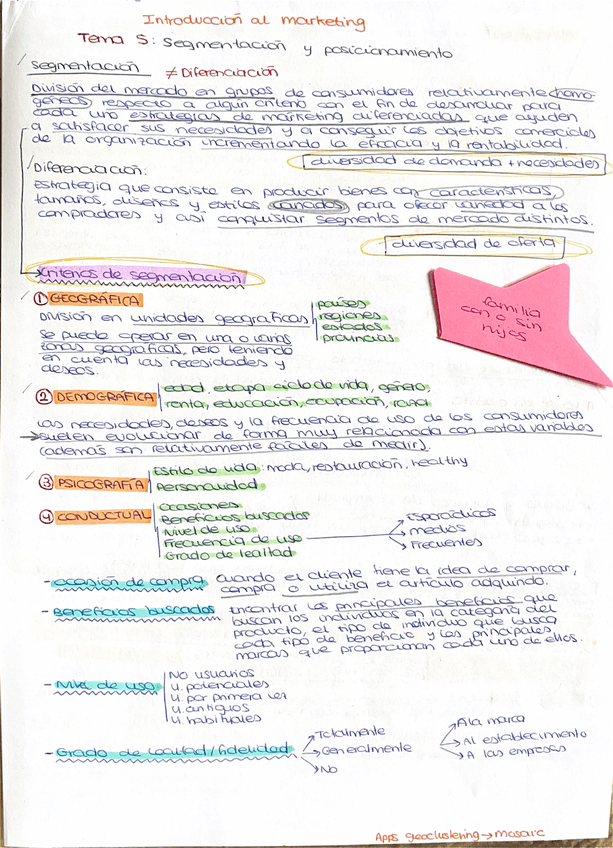 Introducción al marketing
Tema 5: Segmentación y posicionamiento
Segmentación ≠ Diferenciación
División del mercado en grupos de consumidores relativamente homo-
géneos respecto a algún criterio con el fin de desarrollar para
cada uno estrategias de márketing diferenciadas que ayuden
a satisfacer sus necesidades y a conseguir los objetivos comerciales
de la organización incrementando la eficacia y la rentabilidad.
diversidad de demanda + necesidades
Diferenciación:
Estrategia que consiste en producir bienes con características,
tamaños, diseños y estilos variados para ofrecer variedad a los
compradores y así conquistar segmentos de mercado distintos.
diversidad de oferta
Criterios de segmentación
familia
con o sin
hijos
① GEOGRÁFICA
División en unidades geográficas
países
regiones
estados
provincias
Se puede operar en una o varias
zonas geográficas, pero teniendo
en cuenta las necesidades y
deseos.
② DEMOGRÁFICA
edad, etapa ciclo de vida, género,
renta, educación, ocupación, raza
Las necesidades, deseos y la frecuencia de uso de los consumidores
suelen evolucionar de forma muy relacionada con estas variables
(además son relativamente fáciles de medir).
③ PSICOGRAFÍA
Estilo de vida: moda, restauración, healthy
Personalidad
④ CONDUCTUAL
Ocasiones
Beneficios buscados
Nivel de uso
Frecuencia de uso
Grado de lealtad
Esporádicos
medios
Frecuentes
- Ocasión de compra cuando el cliente tiene la idea de comprar,
compra o utiliza el artículo adquirido.
- Beneficios buscados Encontrar los principales beneficios que
buscan los individuos en la categoría del
producto, el tipo de individuo que busca
cada tipo de beneficio y las principales
marcas que proporcionan cada uno de ellos.
- Nivel de uso
No usuarios
U. potenciales
U. por primera vez
U. antiguos
U. habituales
- Grado de lealtad/fidelidad
Totalmente
Generalmente
No
A la marca
Al establecimiento
A las empresas
Apps geoclustering → mosaic